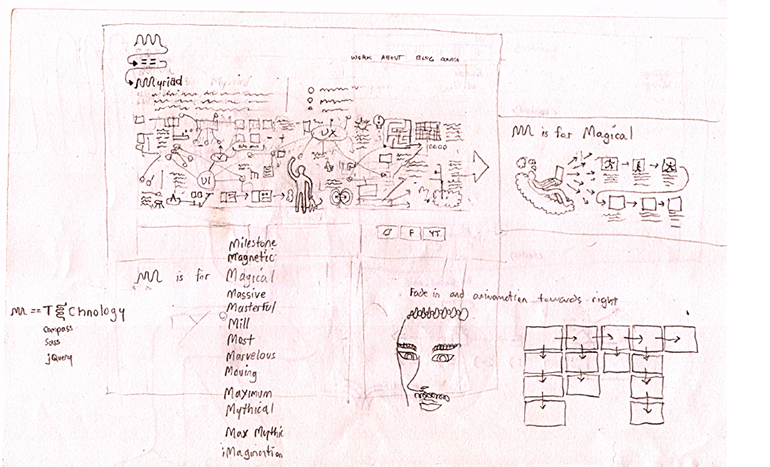 WORK ABOUT BLOG
Myriad
UX
UI
M is for Magical
F YT
Milestone
Magnetic
M is for Magical
Massive
Masterful
Mill
Most
Marvelous
Moving
Maximum
Mythical
Max Mythic
iMagination
M == TECHnology
Compass
Sass
jQuery
Fade in and animation towards right